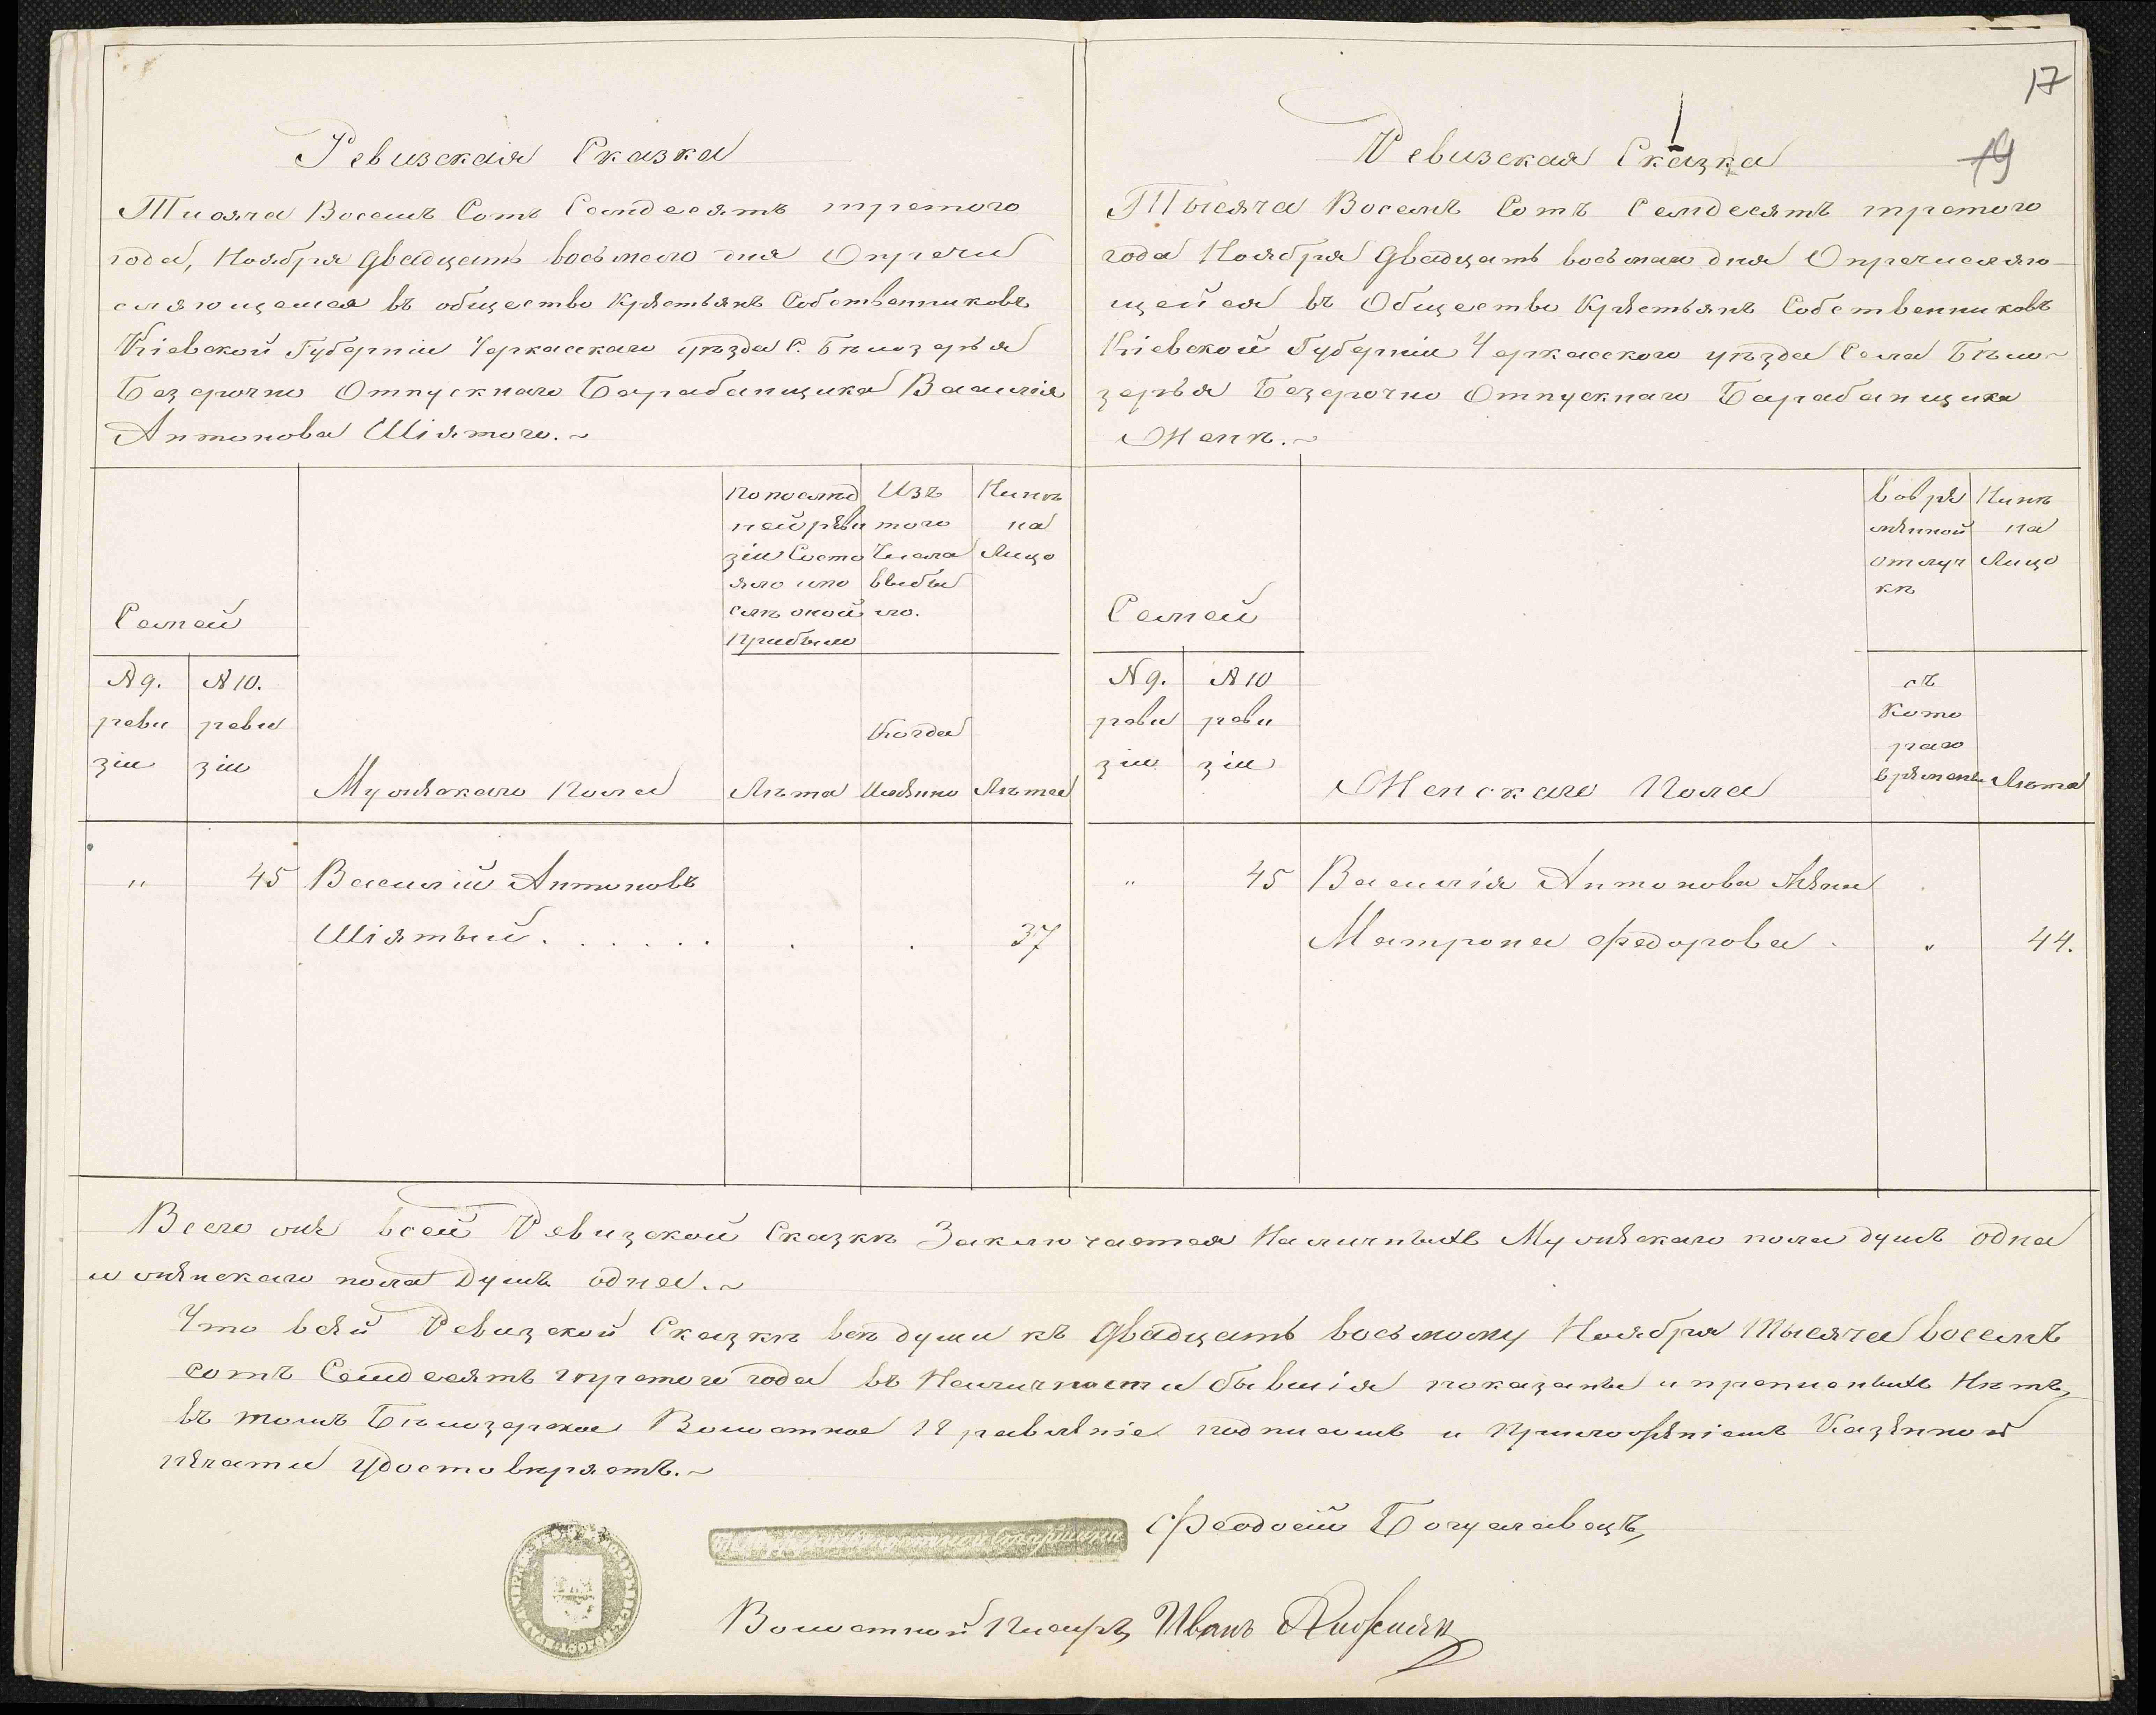 17
19
Ревизская Сказка
Тисяча Восемъ Сотъ Семдесятъ третого
года, Ноября двадцать восьмого дня О причи
сляющемся въ общество Крѣстьянъ Собственниковъ
Кіевской Губерніи Черкасскаго уѣзда С. Бѣлозерья
Безсрочно Отпускнаго Барабанщика Василія
Антонова Шіятого.~
Семей
№ 9. ревизіи
№ 10. ревизіи
Мужѣскаго Пола
По послѣд
ней рѣви
зіи Состо
яло или по
слѣ оной
прибыло
Лѣта
Изъ
того
Числа
выбы
ло.
Когда
Имѣнно
Ниннѣ
на
Лицо
Лѣта
" 45 Василій Антоновъ
Шіятый . . . . . . . . 37
Ревизская Сказка
Тысяча Восемъ Сотъ Семдесятъ третого
года Ноября двадцать восьмаго дня О причисляю-
щейся въ Общество Крѣстьянъ Собственниковъ
Кіевской Губерніи Черкасского уѣзда Села Бѣло-
зерья Безсрочно Отпускнаго Барабанщика
Женѣ.~
Семей
№ 9. ревизіи
№ 10 ревизіи
Женскаго Пола
Во врѣ
мѣнной
отлуч
кѣ
съ
Кото
раго
врѣмени
Нинѣ
на
Лицо
Лѣта
" 45 Василія Антонова Жѣна
Матрона Федорова . . 44.
Всего въ всей Ревизской Сказкѣ Заключается Наличныхъ Мужѣскаго пола душъ одна
и жѣнскаго пола Душъ одна.~
Что въ сѣй Ревизской Сказкѣ всѣ души къ двадцать восьмому Ноября Тысяча восемъ
сотъ Семдесятъ третого года въ Наличности бывшія показаны и прописныхъ Нѣтъ,
въ томъ Бѣлозерское Волостное Правлѣніе подписомъ и Приложѣніемъ Казѣнной
пѣчати удостовѣряетъ.~
Волостной Старшина Феодосій Богуславецъ,
Волостной Писарь, Иванъ